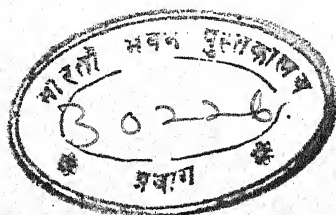 भारती भवन पुस्तकालय
30226
प्रयाग